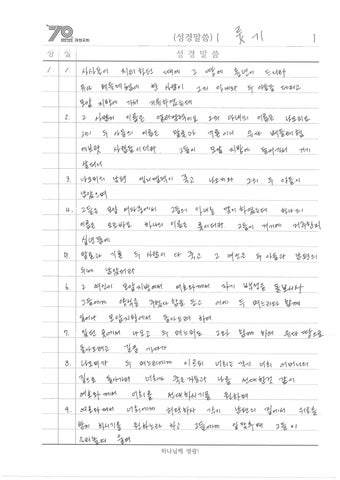 70
(성경말씀) [ 룻기 ]
장 절 성 경 말 씀
1 1. 사사들이 치리하던 때에 그 땅에 흉년이 드니라
유다 베들레헴에 한 사람이 그의 아내와 두 아들을 데리고
모압 지방에 가서 거류하였는데
2. 그 사람의 이름은 엘리멜렉이요 그의 아내의 이름은 나오미요
그의 두 아들의 이름은 말론과 기룐이니 유다 베들레헴
에브랏 사람들이더라 그들이 모압 지방에 들어가서 거기
살더니
3. 나오미의 남편 엘리멜렉이 죽고 나오미와 그의 두 아들이
남았으며
4. 그들은 모압 여자 중에서 그들의 아내를 맞이하였는데 하나의
이름은 오르바요 하나의 이름은 룻이더라 그들이 거기에 거주한지
십년쯤에
5. 말론과 기룐 두 사람이 다 죽고 그 여인은 두 아들과 남편의
뒤에 남았더라
6. 그 여인이 모압 지방에서 여호와께서 자기 백성을 돌보시사
그들에게 양식을 주셨다 함을 듣고 이에 두 며느리와 함께
일어나 모압 지방에서 돌아오려 하여
7. 있던 곳에서 나오고 두 며느리도 그와 함께 하여 유다 땅으로
돌아오려고 길을 가다가
8. 나오미가 두 며느리에게 이르되 너희는 각기 너희 어머니의
집으로 돌아가라 너희가 죽은 자들과 나를 선대한 것 같이
여호와께서 너희를 선대하시기를 원하며
9. 여호와께서 너희에게 허락하사 각기 남편의 집에서 위로를
받게 하시기를 원하노라 하고 그들에게 입 맞추매 그들이
소리를 높여 울며
하나님께 영광!